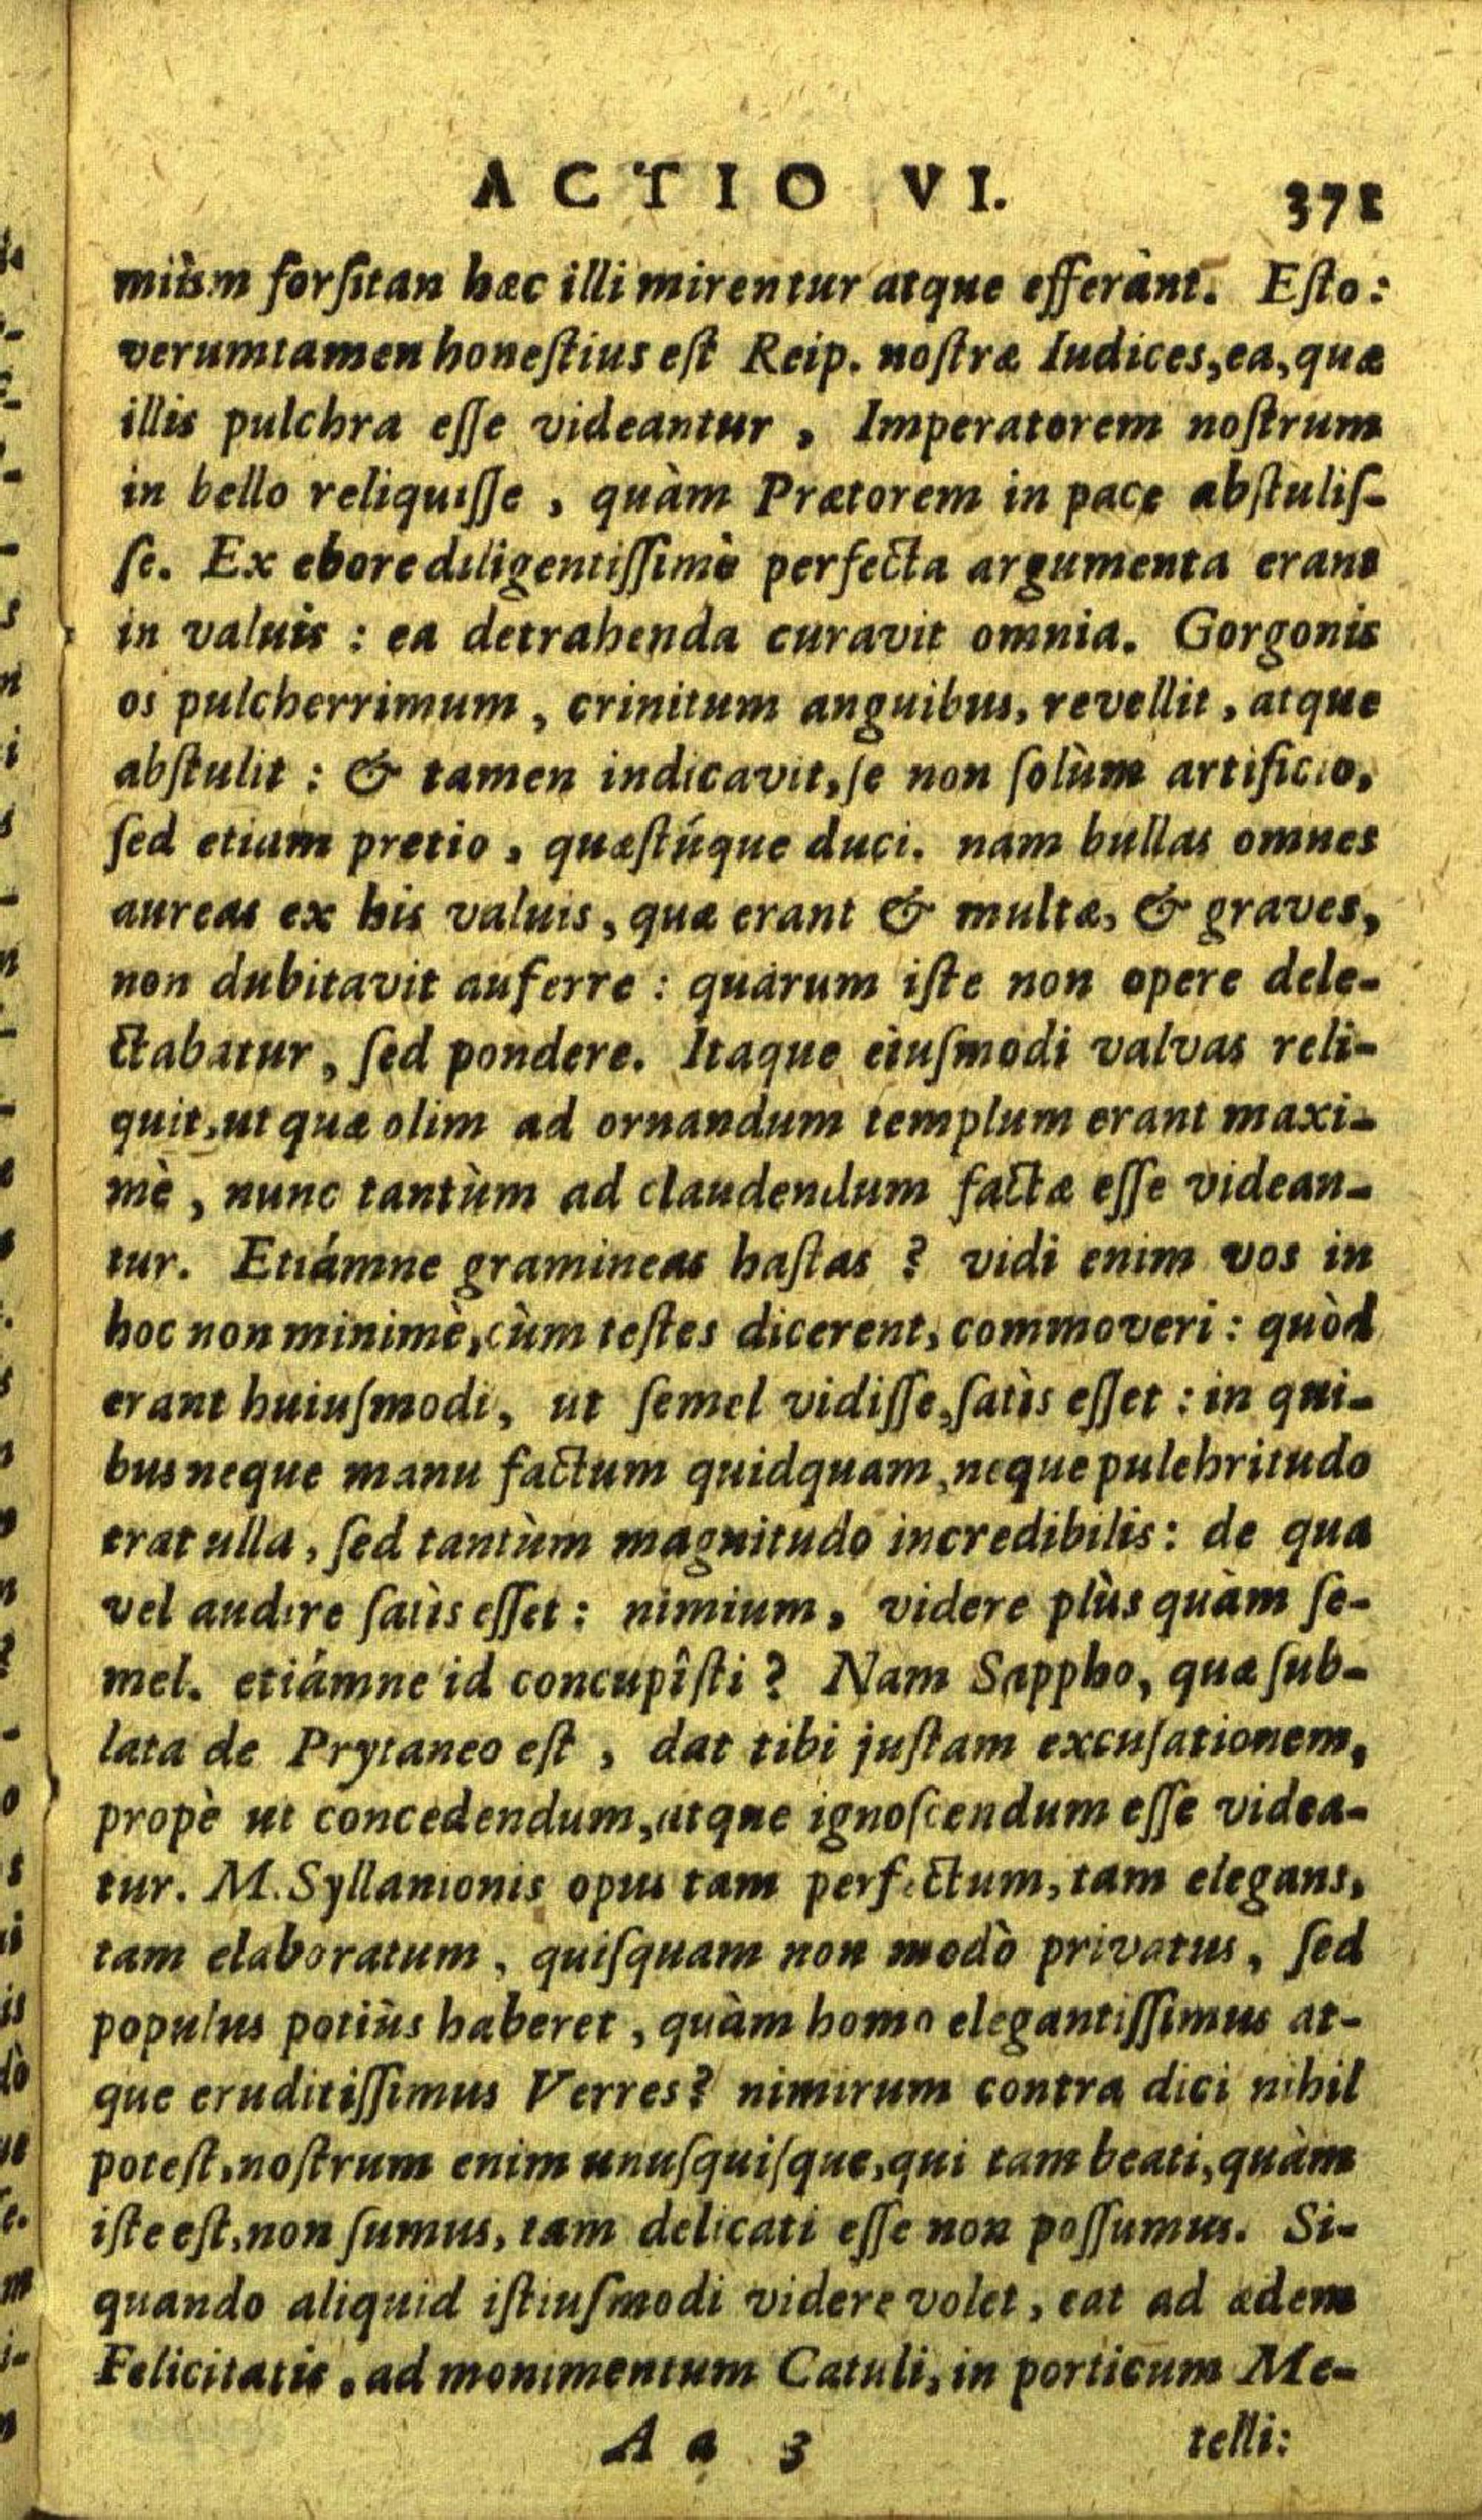 ACTIO VI. 371
miùm forſitan hæc illi mirentur atque efferànt. Eſto:
verumtamen honeſtius eſt Reip. noſtræ Iudices, ea, quæ
illis pulchra eſſe videantur, Imperatorem noſtrum
in bello reliquiſſe, quàm Prætorem in pace abſtuliſ-
ſe. Ex ebore diligentiſſimè perfecta argumenta erant
in valuis: ea detrahenda curavit omnia. Gorgonis
os pulcherrimum, crinitum anguibus, revellit, atque
abſtulit: & tamen indicavit, ſe non ſolùm artificio,
ſed etiam pretio, quæſtúque duci. nam bullas omnes
aureas ex his valuis, quæ erant & multæ, & graves,
non dubitavit auferre: quarum iſte non opere dele-
ctabatur, ſed pondere. Itaque eiuſmodi valvas reli-
quit, ut quæ olim ad ornandum templum erant maxi-
mè, nunc tantùm ad claudendum factæ eſſe videan-
tur. Etiámne gramineas haſtas? vidi enim vos in
hoc non minimè, cùm teſtes dicerent, commoveri: quòd
erant huiuſmodi, ut ſemel vidiſſe, ſatìs eſſet: in qui-
bus neque manu factum quidquam, neque pulehritudo
erat ulla, ſed tantùm magnitudo incredibilis: de qua
vel audire ſatìs eſſet: nimium, videre plùs quàm ſe-
mel. etiámne id concupîſti? Nam Sappho, quæ ſub-
lata de Prytaneo eſt, dat tibi juſtam excuſationem,
propè ut concedendum, atque ignoſcendum eſſe videa-
tur. M. Syllanionis opus tam perfectum, tam elegans,
tam elaboratum, quiſquam non modò privatus, ſed
populus potiùs haberet, quàm homo elegantiſſimus at-
que eruditiſſimus Verres? nimirum contra dici nihil
poteſt, noſtrum enim unuſquiſque, qui tam beati, quàm
iſte eſt, non ſumus, tam delicati eſſe non poſſumus. Si-
quando aliquid iſtiuſmodi videre volet, eat ad ædem
Felicitatis, ad monimentum Catuli, in porticum Me-
A a 3 telli: